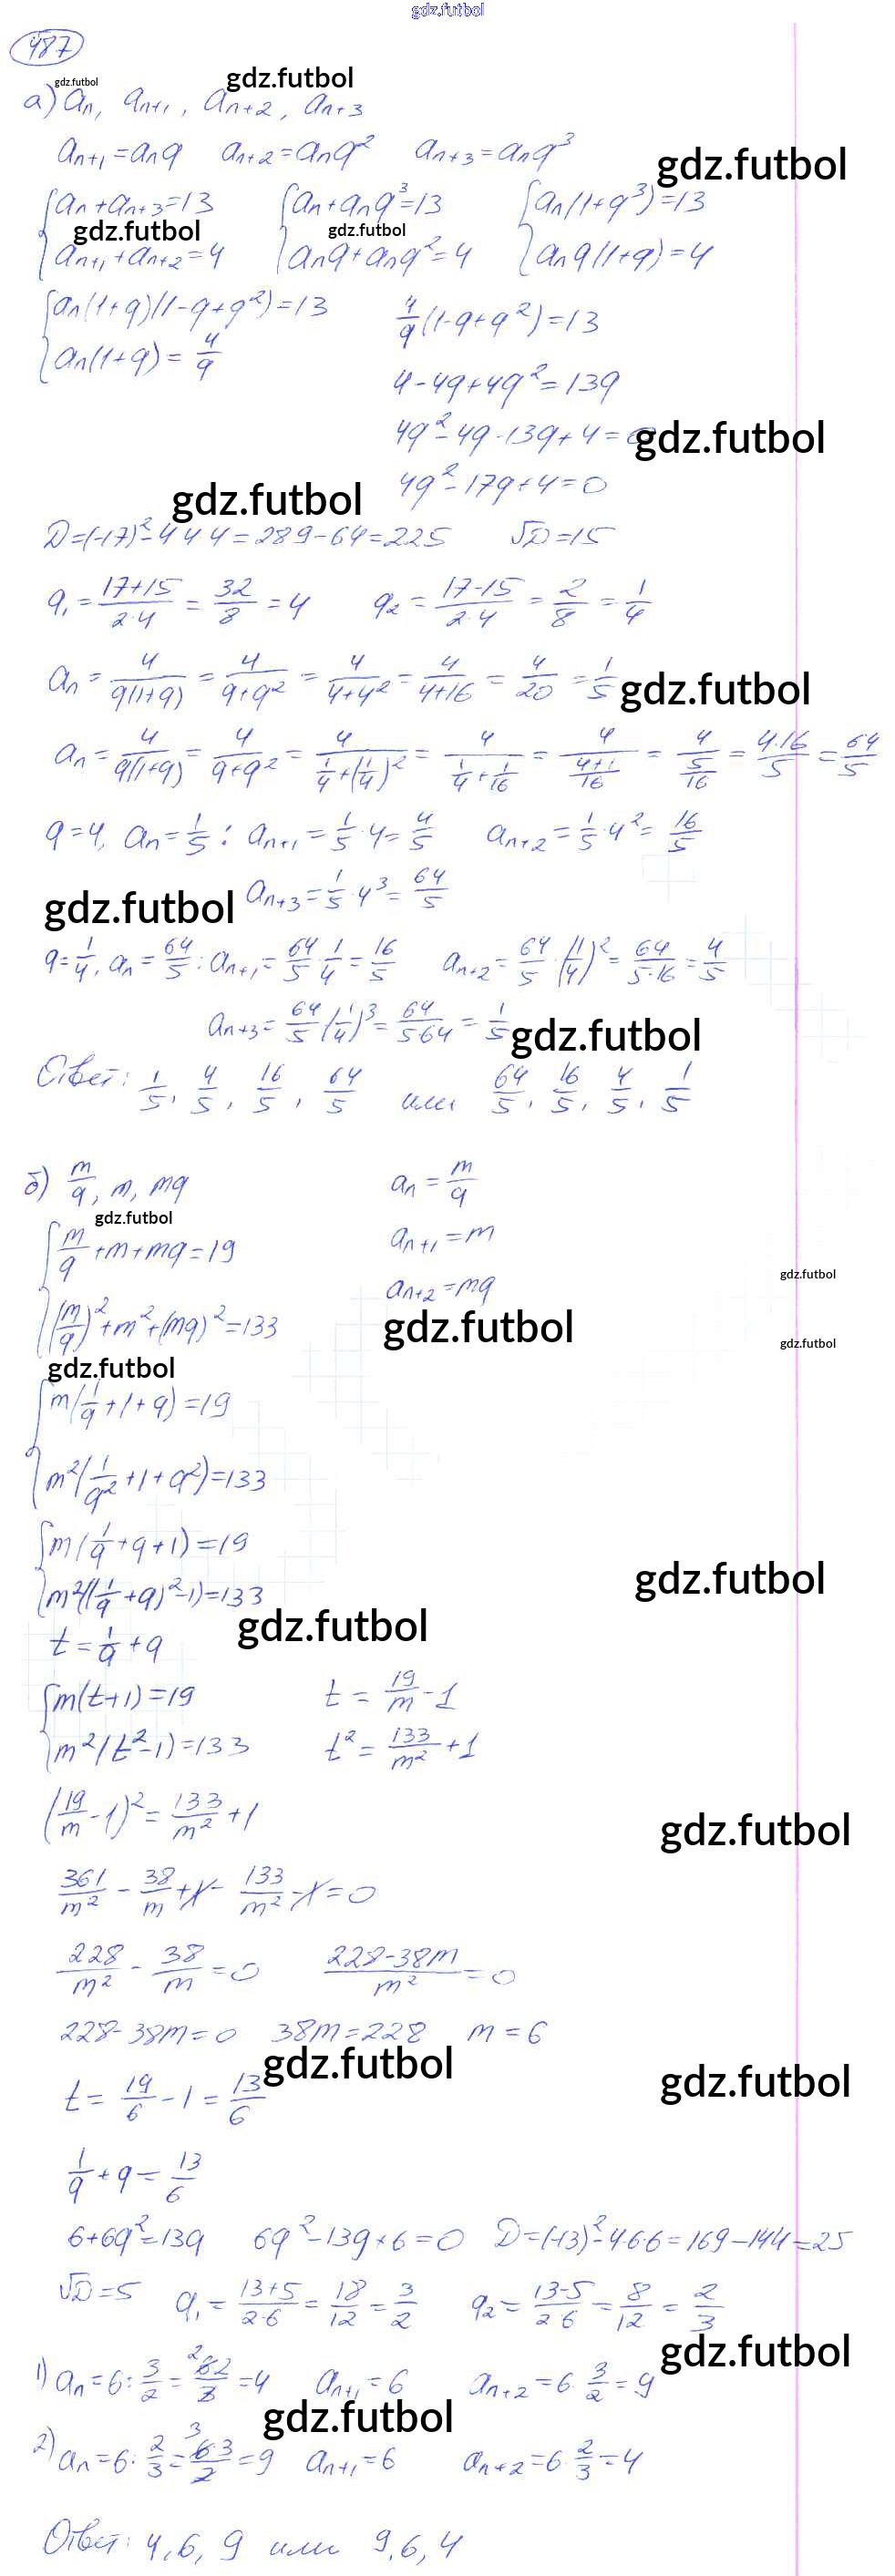 gdz.futbol
487
gdz.futbol gdz.futbol
а) aₙ, aₙ₊₁, aₙ₊₂, aₙ₊₃
aₙ₊₁=aₙq aₙ₊₂=aₙq² aₙ₊₃=aₙq³
gdz.futbol
{aₙ+aₙ₊₃=13 {aₙ+aₙq³=13 {aₙ(1+q³)=13
gdz.futbol gdz.futbol
{aₙ₊₁+aₙ₊₂=4 {aₙq+aₙq²=4 {aₙq(1+q)=4
{aₙ(1+q)(1-q+q²)=13 4/q(1-q+q²)=13
{aₙ(1+q)=4/q
4-4q+4q²=13q
4q²-4q-13q+4=0
gdz.futbol
4q²-17q+4=0
gdz.futbol
D=(-17)²-4·4·4=289-64=225 √D=15
q₁=(17+15)/(2·4)=32/8=4 q₂=(17-15)/(2·4)=2/8=1/4
aₙ=4/(q(1+q))=4/(q+q²)=4/(4+4²)=4/(4+16)=4/20=1/5
gdz.futbol
aₙ=4/(q(1+q))=4/(q+q²)=4/(1/4+(1/4)²)=4/(1/4+1/16)=4/((4+1)/16)=4/(5/16)=4·16/5=64/5
q=4, aₙ=1/5: aₙ₊₁=1/5·4=4/5 aₙ₊₂=1/5·4²=16/5
aₙ₊₃=1/5·4³=64/5
gdz.futbol
q=1/4, aₙ=64/5: aₙ₊₁=64/5·1/4=16/5 aₙ₊₂=64/5·(1/4)²=64/(5·16)=4/5
aₙ₊₃=64/5(1/4)³=64/(5·64)=1/5
gdz.futbol
Ответ: 1/5, 4/5, 16/5, 64/5 или 64/5, 16/5, 4/5, 1/5
б) m/q, m, mq aₙ=m/q
gdz.futbol
{m/q+m+mq=19 aₙ₊₁=m
gdz.futbol
aₙ₊₂=mq
{(m/q)²+m²+(mq)²=133
gdz.futbol
gdz.futbol
gdz.futbol
{m(1/q+1+q)=19
{m²(1/q²+1+q²)=133
{m(1/q+q+1)=19
gdz.futbol
{m²((1/q+q)²-1)=133
gdz.futbol
t=1/q+q
{m(t+1)=19 t=19/m-1
{m²(t²-1)=133 t²=133/m²+1
(19/m-1)²=133/m²+1
gdz.futbol
361/m²-38/m+1-133/m²-1=0
228/m²-38/m=0 (228-38m)/m²=0
228-38m=0 38m=228 m=6
gdz.futbol
gdz.futbol
t=19/6-1=13/6
1/q+q=13/6
6+6q²=13q 6q²-13q+6=0 D=(-13)²-4·6·6=169-144=25
√D=5 q₁=(13+5)/(2·6)=18/12=3/2 q₂=(13-5)/(2·6)=8/12=2/3
gdz.futbol
1) aₙ=6:3/2=6·2/3=4 aₙ₊₁=6 aₙ₊₂=6·3/2=9
gdz.futbol
2) aₙ=6:2/3=6·3/2=9 aₙ₊₁=6 aₙ₊₂=6·2/3=4
Ответ: 4, 6, 9 или 9, 6, 4